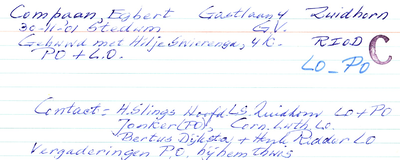 Compaan, Egbert Gastlaan 4 Zuidhorn
30-11-01 Stedum G.V.
Gehuwd met Hilje Swierenga, 4 K. RIOD C
PO + L.O. LO-PO
Contact = H. Slings Hoofd LS. Zuidhorn LO + PO
Jonker (PO), Corn. Luth, Lo.
Bertus Dijkstra + Henk Ridder LO
Vergaderingen P.O. bij hem thuis